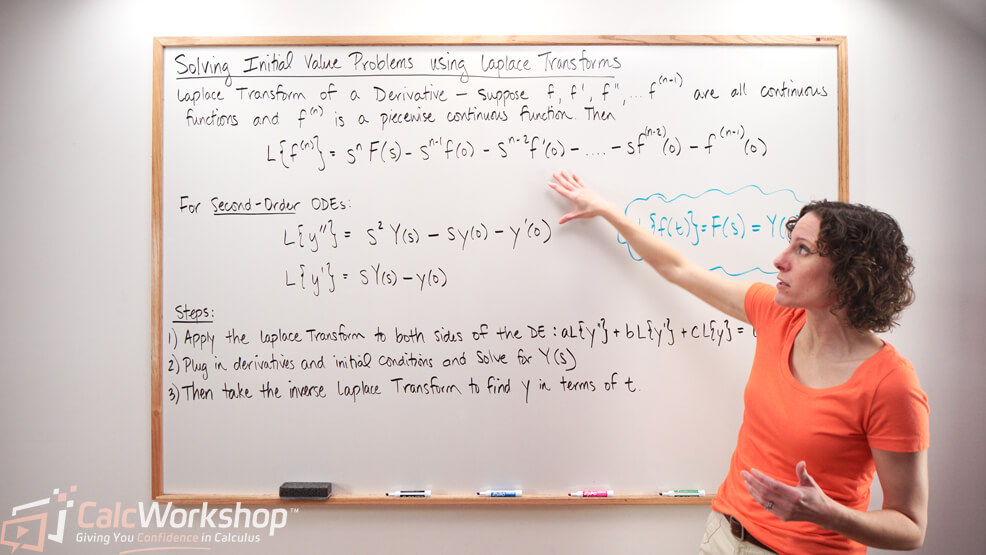 Solving Initial Value Problems using Laplace Transforms
Laplace Transform of a Derivative – Suppose f, f', f'', ... f^(n-1) are all continuous
functions and f^(n) is a piecewise continuous function. Then
L{f^(n)} = s^n F(s) - s^(n-1) f(0) - s^(n-2) f'(0) - .... - s f^(n-2)(0) - f^(n-1)(0)
For Second-Order ODEs:
L{y''} = s^2 Y(s) - sy(0) - y'(0)
{f(t)} = F(s) = Y(
L{y'} = sY(s) - y(0)
Steps:
1) Apply the Laplace Transform to both sides of the DE: aL{y''} + bL{y'} + cL{y} =
2) Plug in derivatives and initial conditions and Solve for Y(s)
3) Then take the inverse Laplace Transform to find y in terms of t.
CalcWorkshop™
Giving You Confidence in Calculus